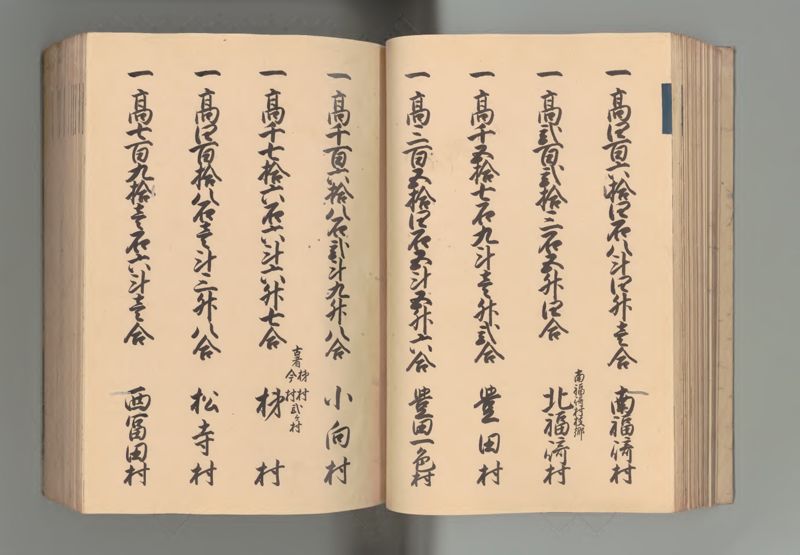 一 高四百六拾四石八斗四升壱合 南福崎村
一 高弐百弐拾三石五升四合 南福崎村枝郷 北福崎村
一 高千五拾七石九斗壱升弐合 豊田村
一 高三百五拾四石五斗五升六合 豊田一色村
一 高千百六拾八石弐斗九升八合 小向村
一 高千七拾六石六斗六升七合 古者 柿村 今 村弐ヶ村 柿村
一 高四百拾八石壱斗三升八合 松寺村
一 高七百九拾壱石六斗壱合 西冨田村